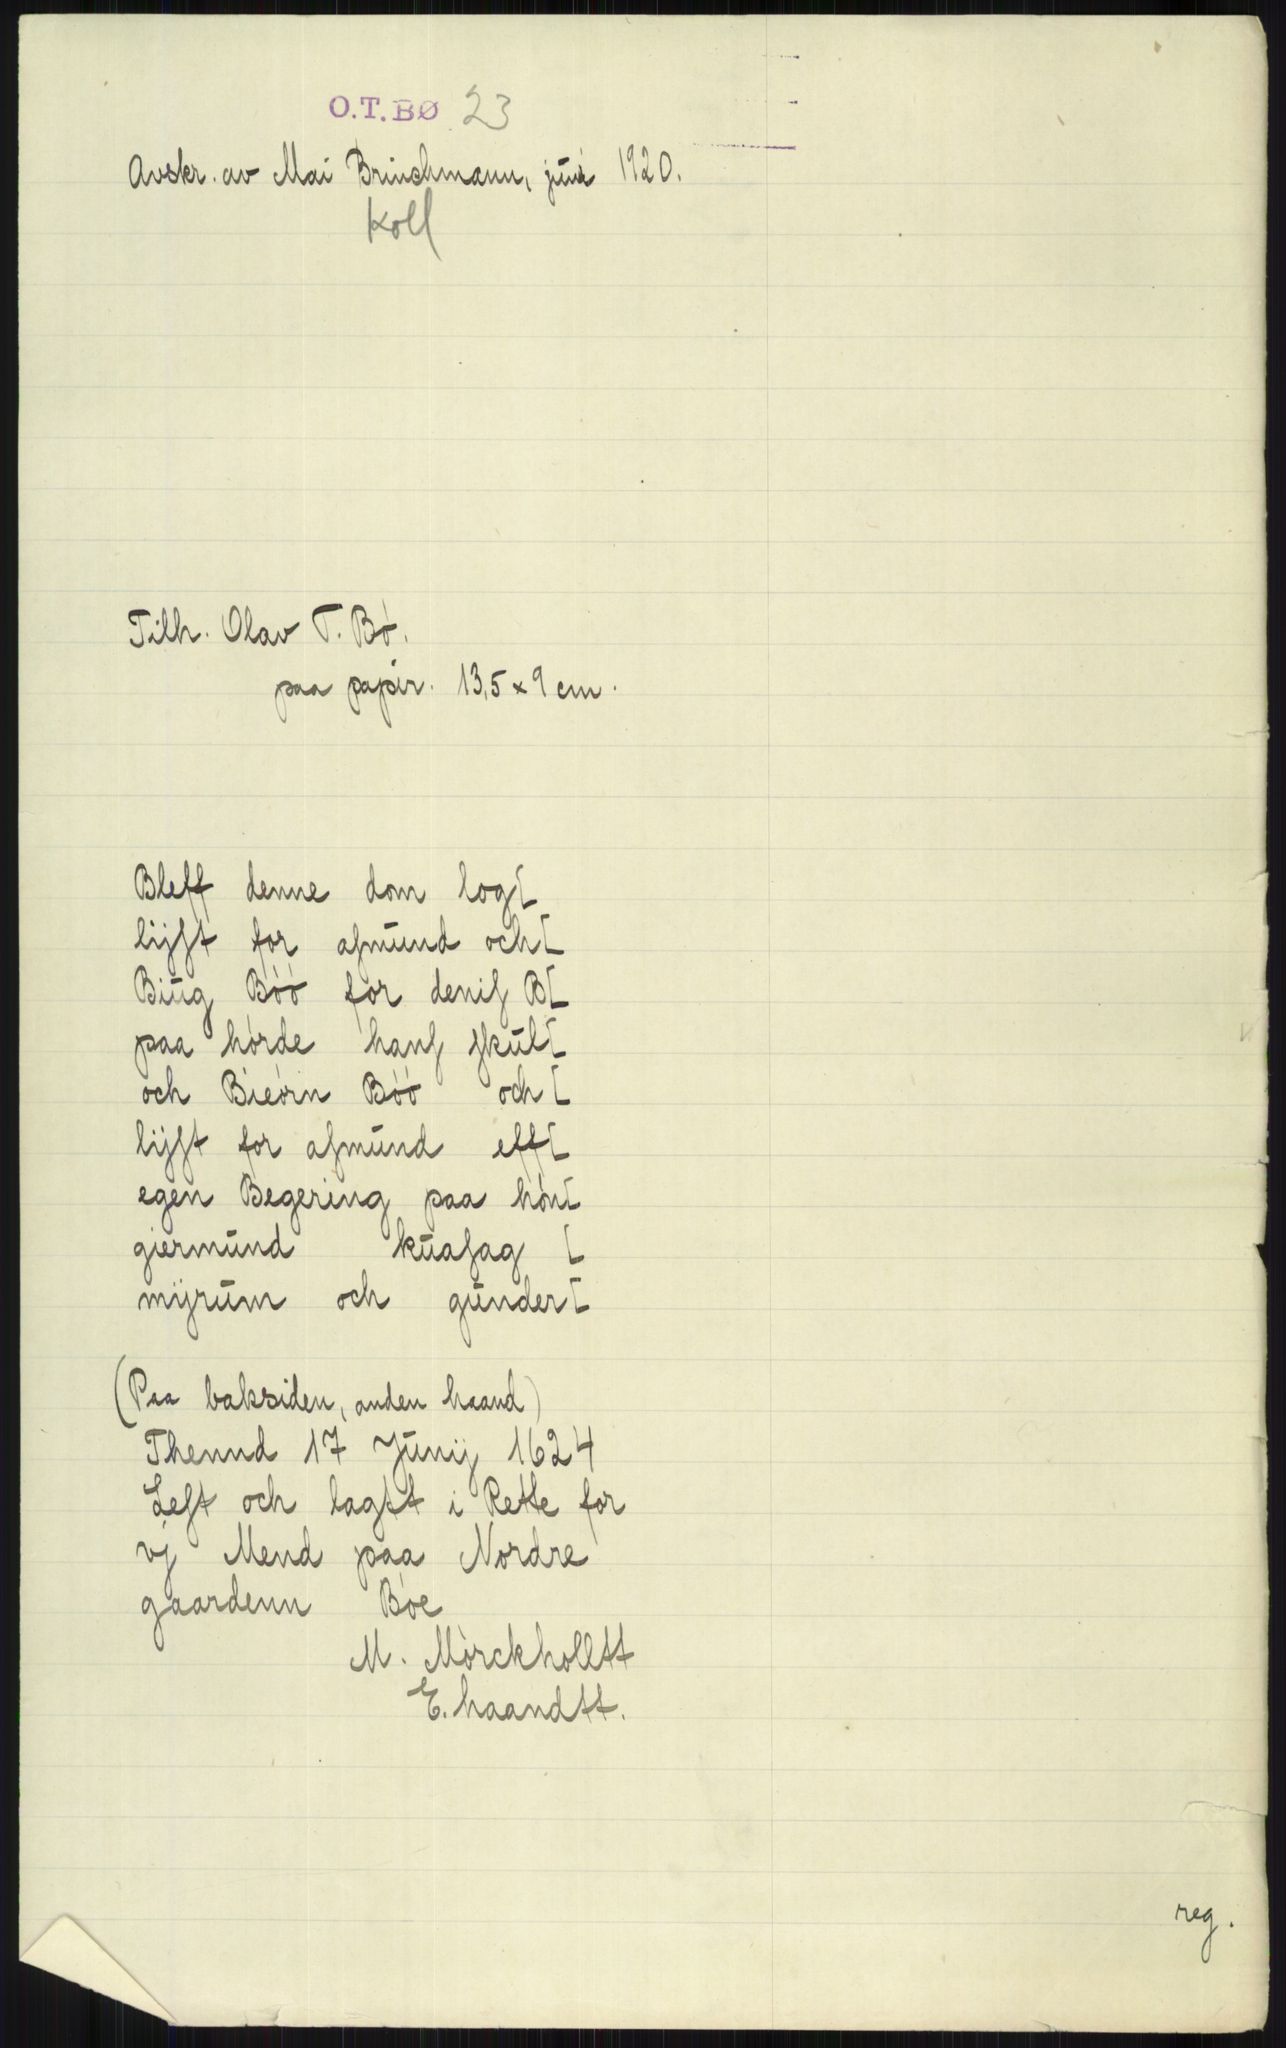 O.T.BØ 23
Avskr. av Mai Brinchmann, juni 1920.
Koll
Tilh. Olav T. Bø.
paa papir. 13,5 × 9 cm.
Bleff denne dom log[
lijſt for aſmŭnd och [
Biŭg Böö for deniſ B[
paa hörde hanſ ſkŭl[
och Bieörn Böö och [
lijſt for aſmŭnd eff[
egen Begering paa hön[
giermŭnd kŭaſag [
mijrŭm och gŭnder[
(Paa baksiden, anden haand)
Thennd 17 Jŭnij 1624
Leſt och lagtt i Rette for
vj Mend paa Nordre
gaardenn Böe
M. Mörckholltt
E. haandtt.
reg.